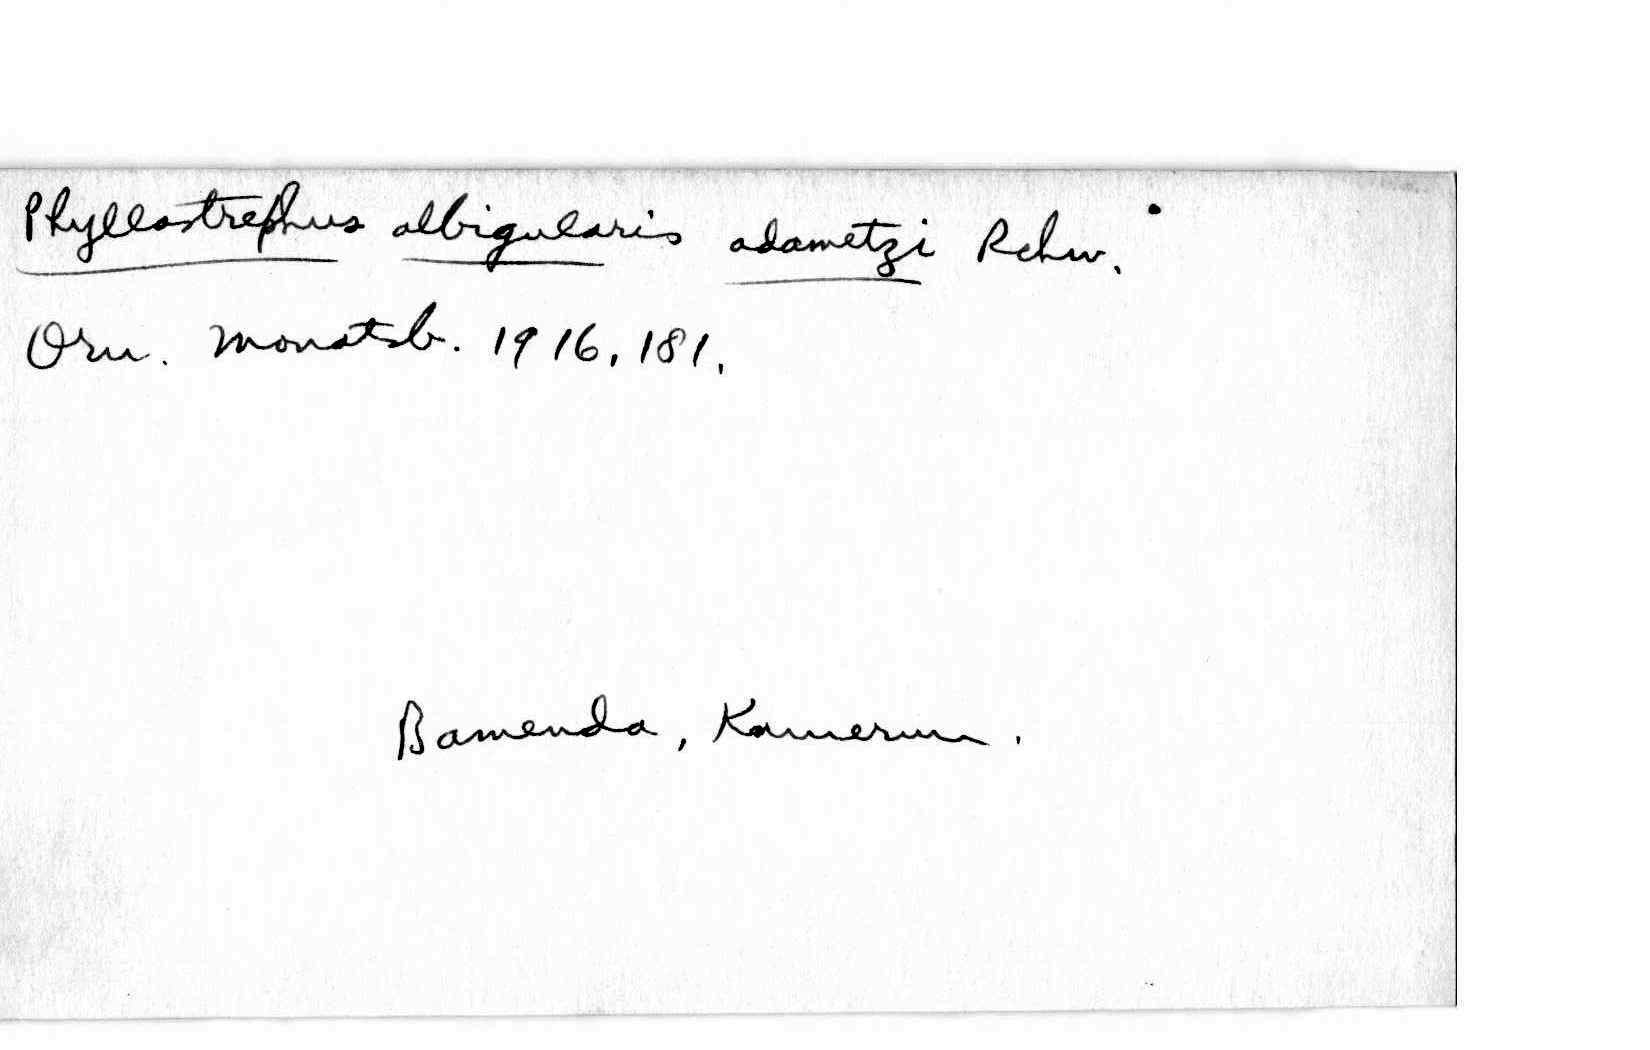 Phyllastrephus albigularis adametzi Rchw.
Orn. Monatsb. 1916, 181.
Bamenda, Kamerun.